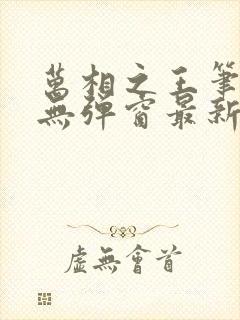 萬相之王筆
無彈窗最新
虛無會首